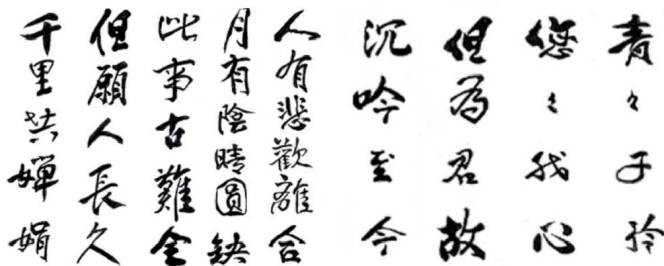 青々子衿
悠々我心
但為君故
沉吟至今
人有悲歡離合
月有陰晴圓缺
此事古難全
但願人長久
千里共嬋娟